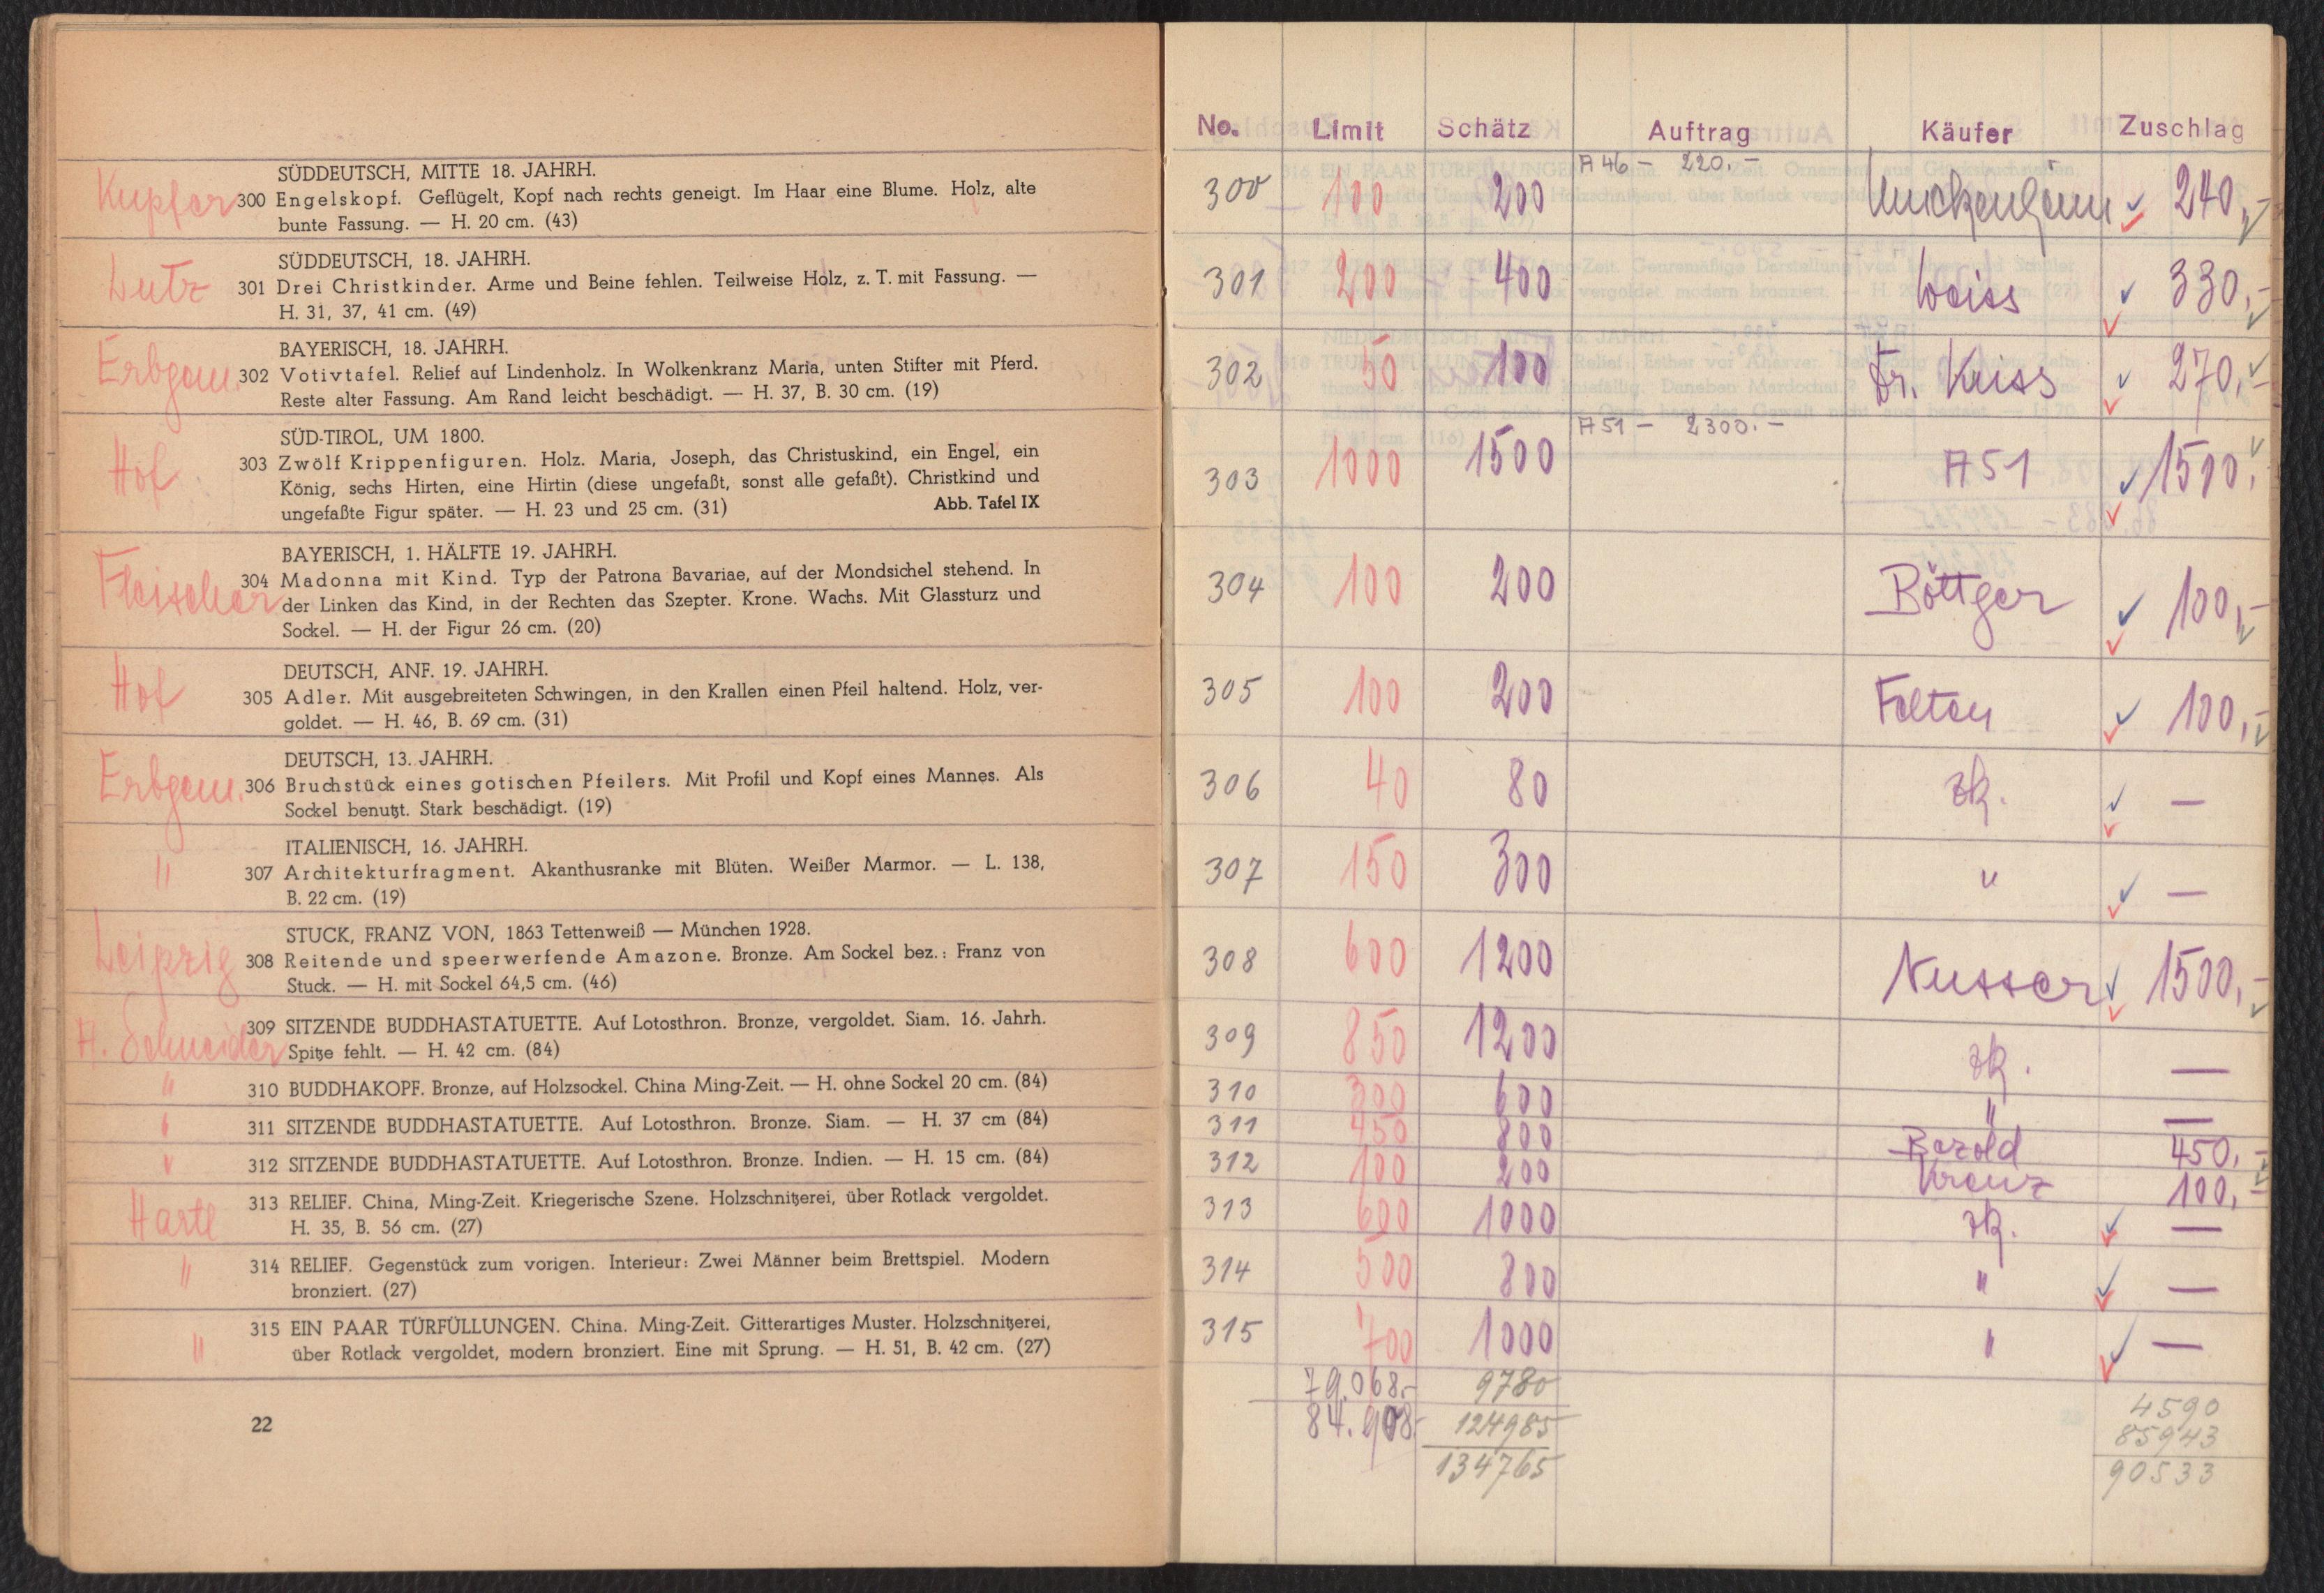 SÜDDEUTSCH, MITTE 18. JAHRH.
Kupfer 300 Engelskopf. Geflügelt, Kopf nach rechts geneigt. Im Haar eine Blume. Holz, alte
bunte Fassung. — H. 20 cm. (43)
SÜDDEUTSCH, 18. JAHRH.
Lutz 301 Drei Christkinder. Arme und Beine fehlen. Teilweise Holz, z. T. mit Fassung. —
H. 31, 37, 41 cm. (49)
BAYERISCH, 18. JAHRH.
Erbgem. 302 Votivtafel. Relief auf Lindenholz. In Wolkenkranz Maria, unten Stifter mit Pferd.
Reste alter Fassung. Am Rand leicht beschädigt. — H. 37, B. 30 cm. (19)
SÜD-TIROL, UM 1800.
Hof 303 Zwölf Krippenfiguren. Holz. Maria, Joseph, das Christuskind, ein Engel, ein
König, sechs Hirten, eine Hirtin (diese ungefaßt, sonst alle gefaßt). Christkind und
ungefaßte Figur später. — H. 23 und 25 cm. (31) Abb. Tafel IX
BAYERISCH, 1. HÄLFTE 19. JAHRH.
Fleischer 304 Madonna mit Kind. Typ der Patrona Bavariae, auf der Mondsichel stehend. In
der Linken das Kind, in der Rechten das Szepter. Krone. Wachs. Mit Glassturz und
Sockel. — H. der Figur 26 cm. (20)
DEUTSCH, ANF. 19. JAHRH.
Hof 305 Adler. Mit ausgebreiteten Schwingen, in den Krallen einen Pfeil haltend. Holz, ver-
goldet. — H. 46, B. 69 cm. (31)
DEUTSCH, 13. JAHRH.
Erbgem. 306 Bruchstück eines gotischen Pfeilers. Mit Profil und Kopf eines Mannes. Als
Sockel benutzt. Stark beschädigt. (19)
ITALIENISCH, 16. JAHRH.
" 307 Architekturfragment. Akanthusranke mit Blüten. Weißer Marmor. — L. 138,
B. 22 cm. (19)
STUCK, FRANZ VON, 1863 Tettenweiß — München 1928.
Leipzig 308 Reitende und speerwerfende Amazone. Bronze. Am Sockel bez.: Franz von
Stuck. — H. mit Sockel 64,5 cm. (46)
309 SITZENDE BUDDHASTATUETTE. Auf Lotosthron. Bronze, vergoldet. Siam. 16. Jahrh.
A. Schneider Spitze fehlt. — H. 42 cm. (84)
" 310 BUDDHAKOPF. Bronze, auf Holzsockel. China Ming-Zeit. — H. ohne Sockel 20 cm. (84)
" 311 SITZENDE BUDDHASTATUETTE. Auf Lotosthron. Bronze. Siam. — H. 37 cm (84)
" 312 SITZENDE BUDDHASTATUETTE. Auf Lotosthron. Bronze. Indien. — H. 15 cm. (84)
313 RELIEF. China, Ming-Zeit. Kriegerische Szene. Holzschnitzerei, über Rotlack vergoldet.
Hartl H. 35, B. 56 cm. (27)
" 314 RELIEF. Gegenstück zum vorigen. Interieur: Zwei Männer beim Brettspiel. Modern
bronziert. (27)
315 EIN PAAR TÜRFÜLLUNGEN. China. Ming-Zeit. Gitterartiges Muster. Holzschnitzerei,
" über Rotlack vergoldet, modern bronziert. Eine mit Sprung. — H. 51, B. 42 cm. (27)
22
No. Limit Schätz Auftrag Käufer Zuschlag
A 46 — 220.—
300 100 200 240,—
301 200 400 Weiss 330,—
302 50 100 270,—
A 51 — 2300.—
303 1000 1500 A 51 1500,
304 100 200 Böttger 100,—
305 100 200 Felten 100,—
306 40 80 zk. —
307 150 300 " —
308 600 1200 Nusser 1500,—
309 850 1200 zk. —
310 300 600 " —
311 450 800 Barold 450,—
312 100 200 Kreuz 100,—
313 600 1000 zk. —
314 500 800 " —
315 700 1000 " —
79.068.— 9780 4590
124985 85943
134765 90533